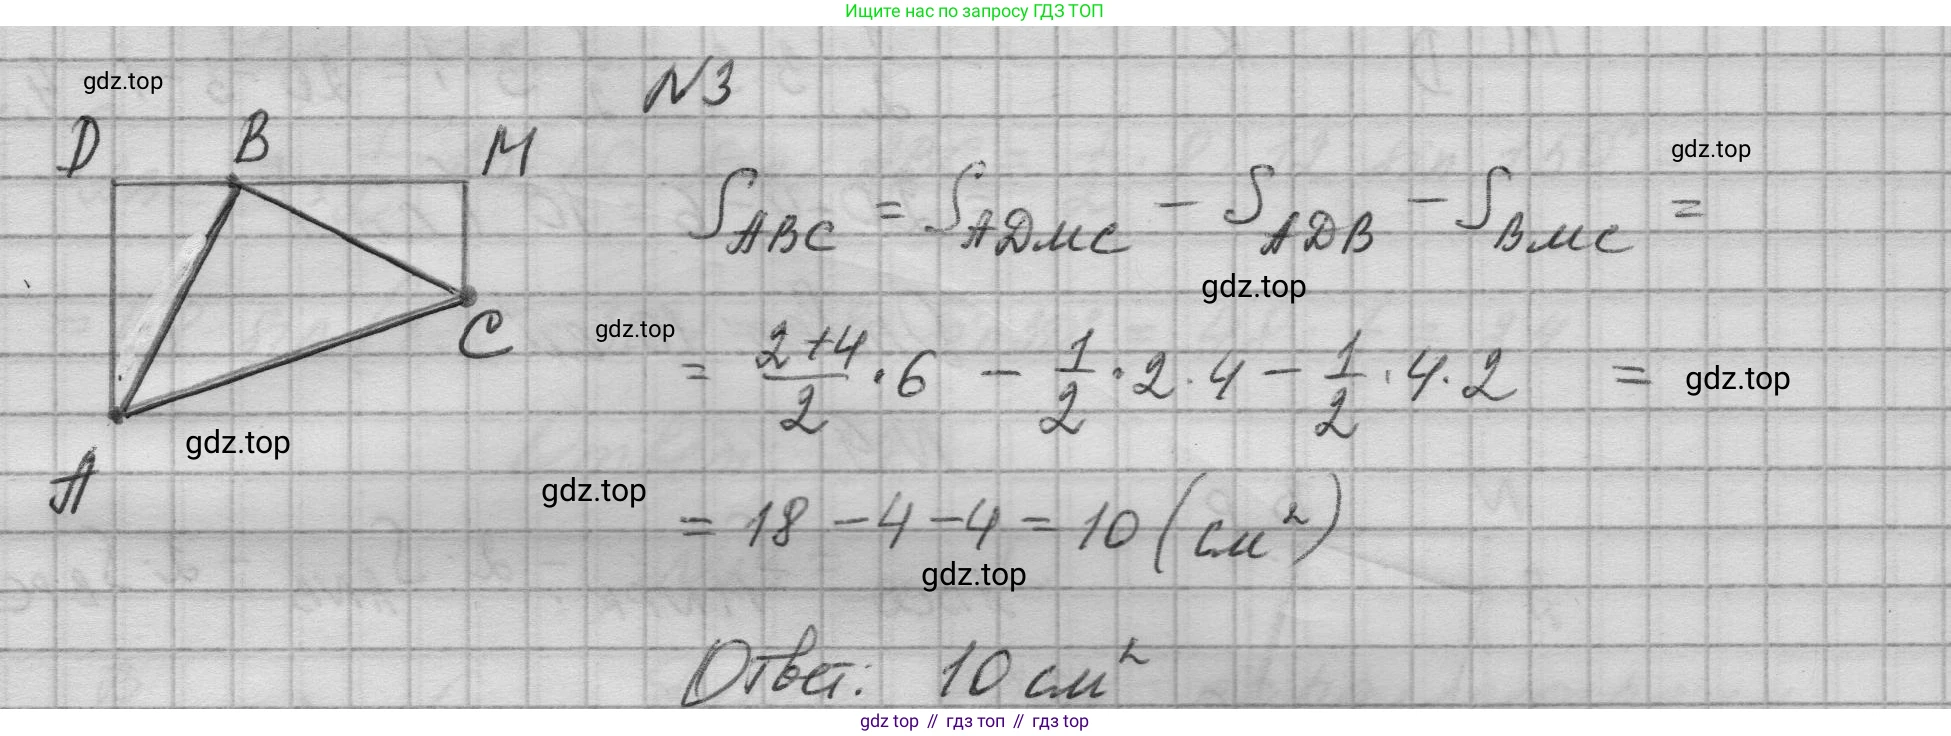 Ищите нас по запросу ГДЗ ТОП
gdz.top
N3
D B M
gdz.top
S_ABC = S_ADMC - S_ADB - S_BMC =
gdz.top
C
gdz.top
= (2+4)/2 · 6 - 1/2 · 2 · 4 - 1/2 · 4 · 2 =
gdz.top
gdz.top
A
gdz.top
= 18 - 4 - 4 = 10 (см²)
gdz.top
Ответ: 10 см²
gdz top // гдз топ // гдз top